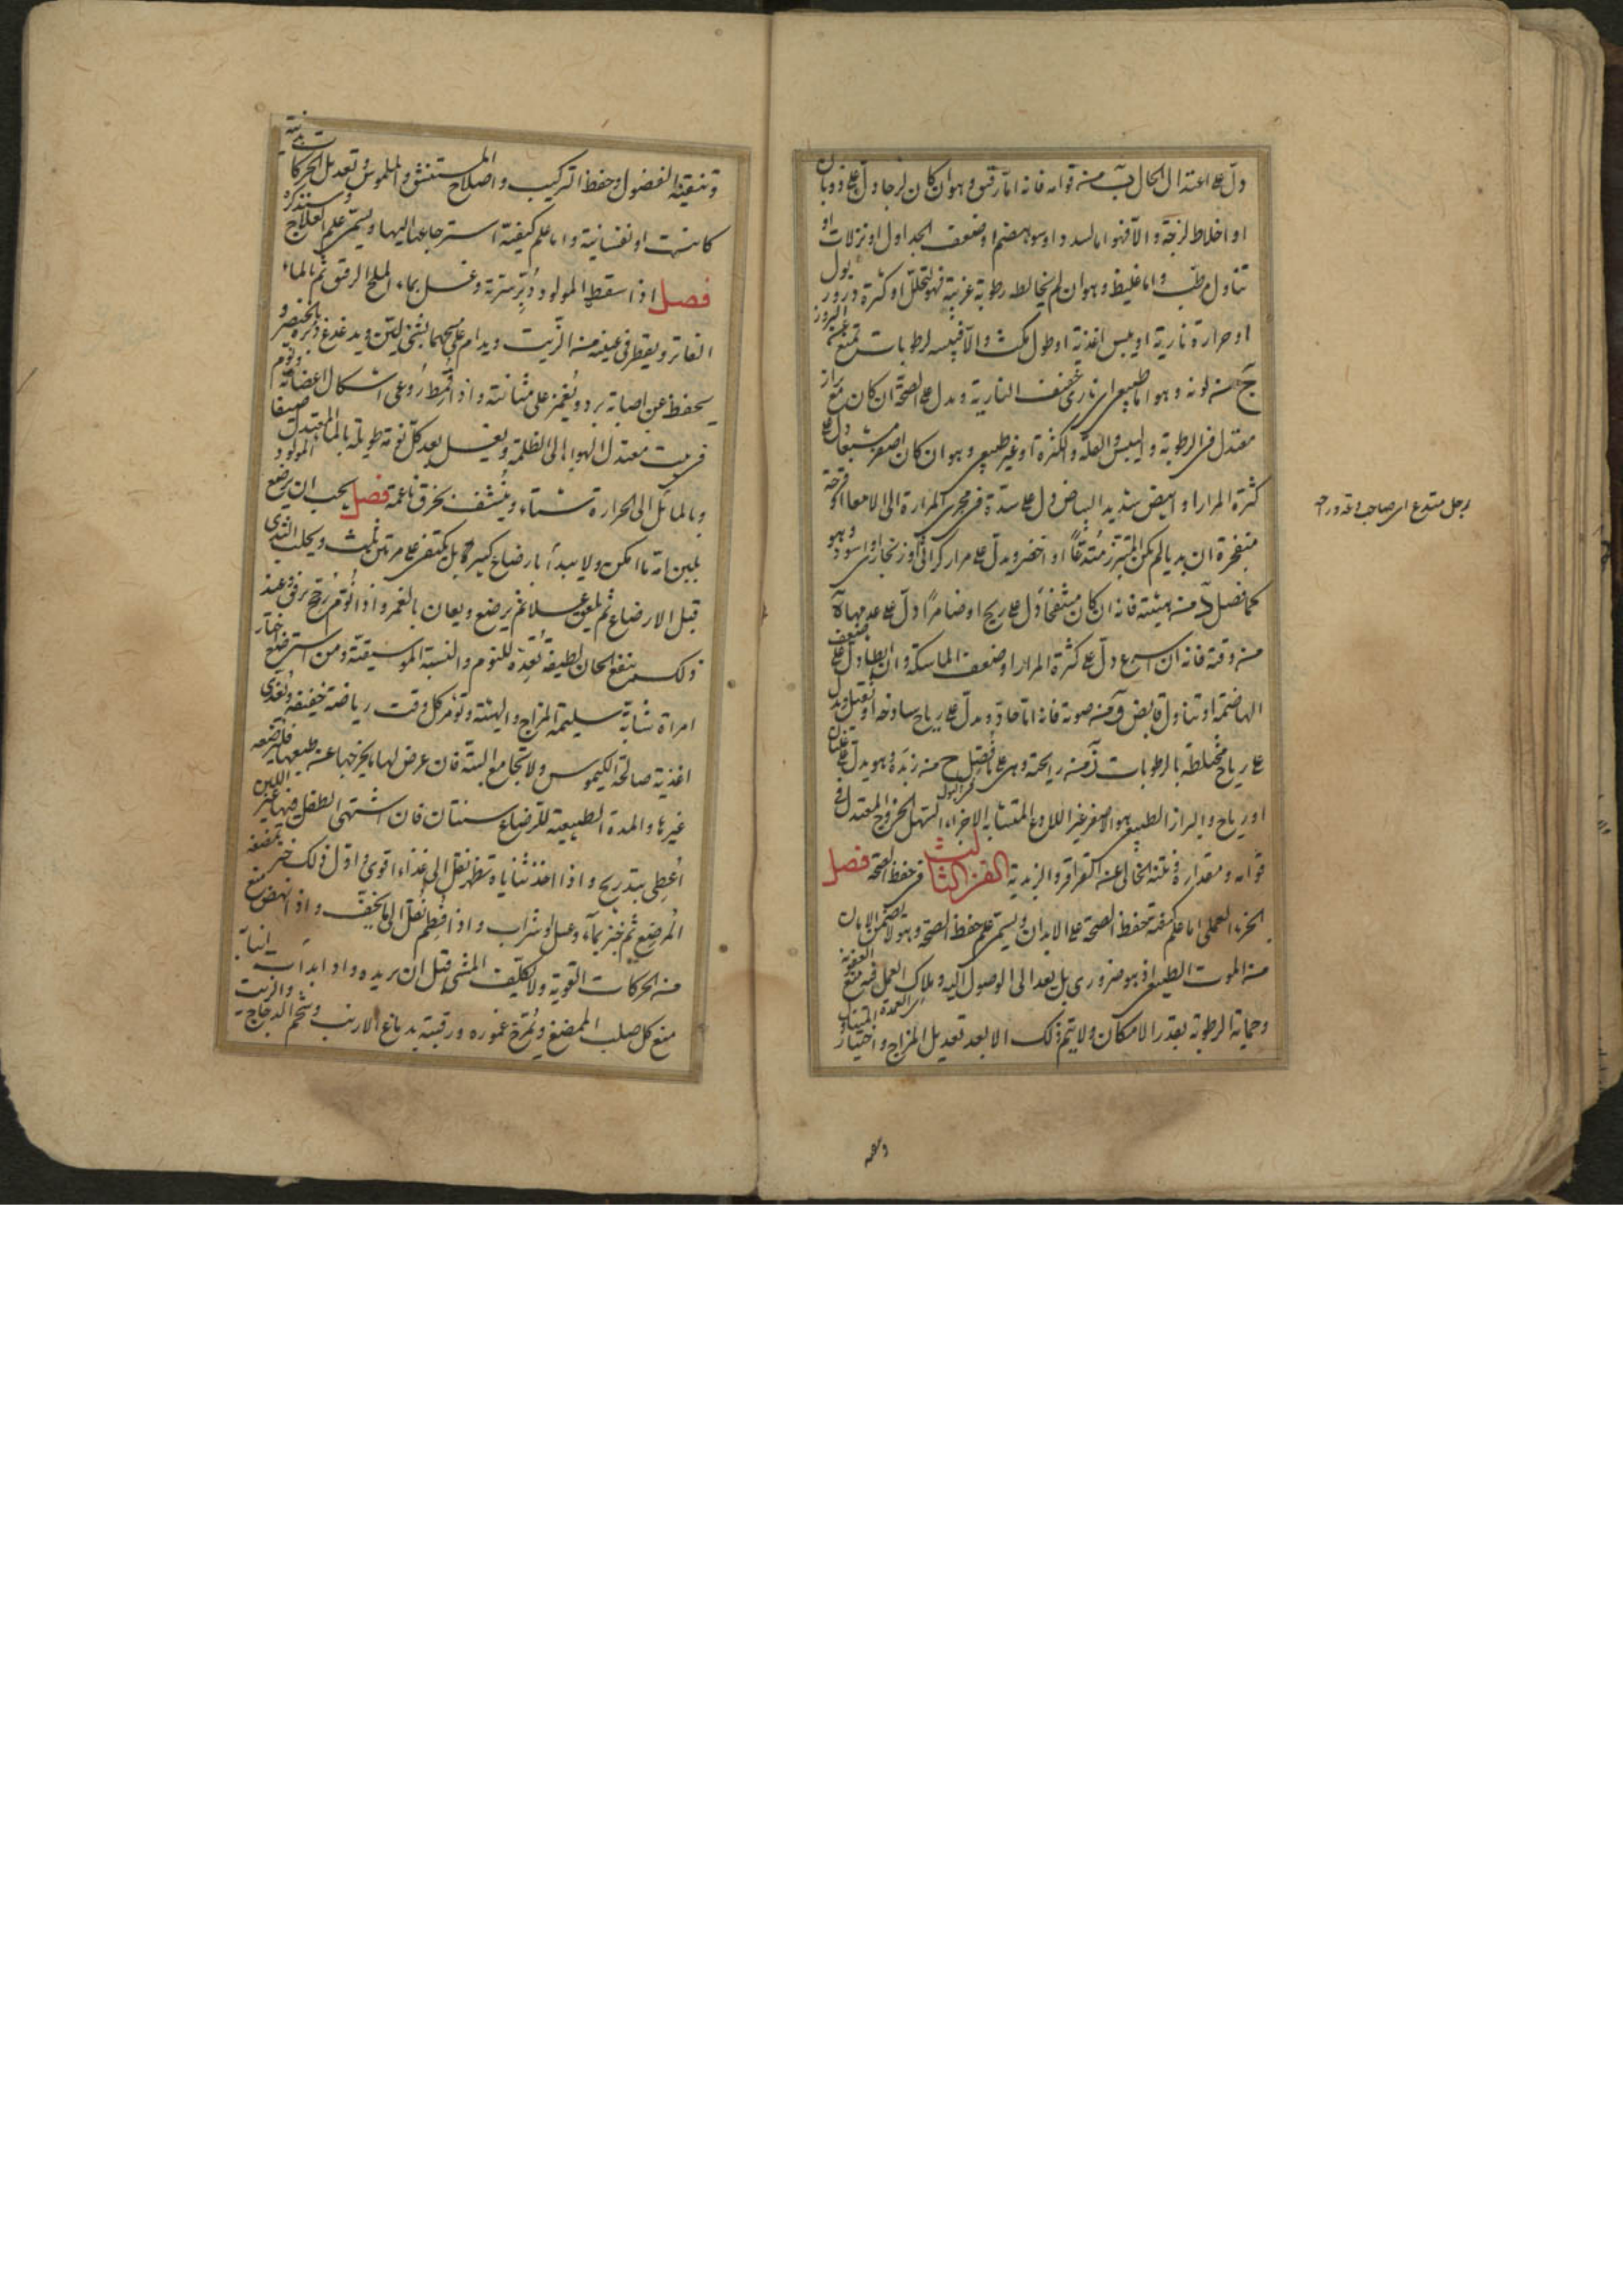 دل على اعتدال الحال ب من قوامه فانه اما رقيق وهو ان كان لزجا دل على ذوبان
او اخلاط لزجة والا فهو اما لسدد او سوء هضم او ضعف الجداول او نزلات او
تناول مرطب واما غليظ وهو ان لم يخالطه رطوبة غريبة فهو لتحلل او كثرة درور بول
او حرارة نارية او يبس اغذية او طول مكث والا فليبسه لرطوبات تمنع عن البروز
ج من لونه وهو اما طبيعي اي ناري خفيف النارية ويدل على الصحة ان كان مع براز
معتدل في الرطوبة واليبس والقلة والكثرة او غير طبيعي وهو ان كان اصفر مشبعا دل على
كثرة المرار او ابيض شديد البياض دل على سدة في مجرى المرارة الى الامعاء او قرحة
منفجرة ان بدا لم يكن المتبرز متدعا او اخضر ويدل على مرار كراثي او زنجاري او اسود وهو
كما فصل د من هيئته فانه ان كان منتفخا دل على ريح او ضامرا دل على عدمها ه
من وقته فانه ان اسرع دل على كثرة المرار او ضعف الماسكة وان ابطأ دل على ضعف
الهاضمة او تناول قابض و من صوته فانه اما حاد ويدل على رياح ساذجة او ثقيل ويدل
على رياح مختلطة بالرطوبات ز من رايحته وهي على ما فصل في البول ح من زبده وهو يدل على غليان
او رياح والبراز الطبيعي هو الاصفر غير اللداع المتشابه الاجزاء السهل الخروج المعتدل في
قوامه ومقداره ونتنه الخالي عن القراقر والزبدية الفن الثالث في حفظ الصحة فصل
الجزء العملي اما علم كيفية حفظ الصحة على الابدان ويسمى علم حفظ الصحة وهو لا يضمن الامان
من الموت الطبيعي اذ هو ضروري بل بعد الى الوصول اليه وملاك العمل فيه منع العفونة
وحماية الرطوبة بقدر الامكان ولا يتم ذلك الا بعد تعديل المزاج واختيار المتناول
رجل متدع اي صاحب
وتنقية الفضول وحفظ التركيب واصلاح المستنشق والملموس وتعديل الحركات بدنية
كانت او نفسانية واما علم كيفية استرجاعها اليها ويسمى علم العلاج وسنذكره
فصل اذا سقط المولود دبر سرته وغسل بماء الملح الرقيق ثم بالماء
الفاتر ويقطر في عينيه من الزيت ويدام على مسحهما بشيء لين ويدغدغ دبره بالخنصر و
يحفظ عن اصابة برد ويغمز على مثانته واذا قمط روعي اشكال اعضائه ونوم
في بيت معتدل الهواء الى الظلمة ويغسل بعد كل نومة طويلة بالماء المعتدل صيفا
وبالمائل الى الحرارة شتاء وينشف بخرق ناعمة فصل يجب ان يرضع المولود
بلبن امه ما امكن ولا يبدأ بارضاع كبير بل يكتفى على مرتين ثلث ويحلب الثدي
قبل الارضاع ثم يلعق عسلا ثم يرضع ويعان بالغمز واذا نوم رجح برفق وعند
ذلك ينفع الحان لطيفة تعده للنوم والنسبة الموسيقية ومن استرضع اختار
امراة شابة سليمة المزاج والهيئة وتؤمر كل وقت رياضة خفيفة وتغذى
اغذية صالحة الكيموس ولا تجامع البتة فان عرض لها ما يخرجها عن طبعها فلترضعه
غيرها والمدة الطبيعية للرضاع سنتان فان اشتهى الطفل فيها غير اللبن
اعطي بتدريج واذا اخذ ثناياه تظهر نقل الى غذاء اقوى واول ذلك خبز تمضغه
المرضع ثم خبز بماء وعسل او شراب واذا فطم نقل الى ما يخف واذا نهض منع
من الحركات القوية ولا يكلف المشي قبل ان يريده واذا بدات انيابه
منع كل صلب الممضغ ويمرخ غموره ورقبته بدماغ الارنب وشحم الدجاج والزيت